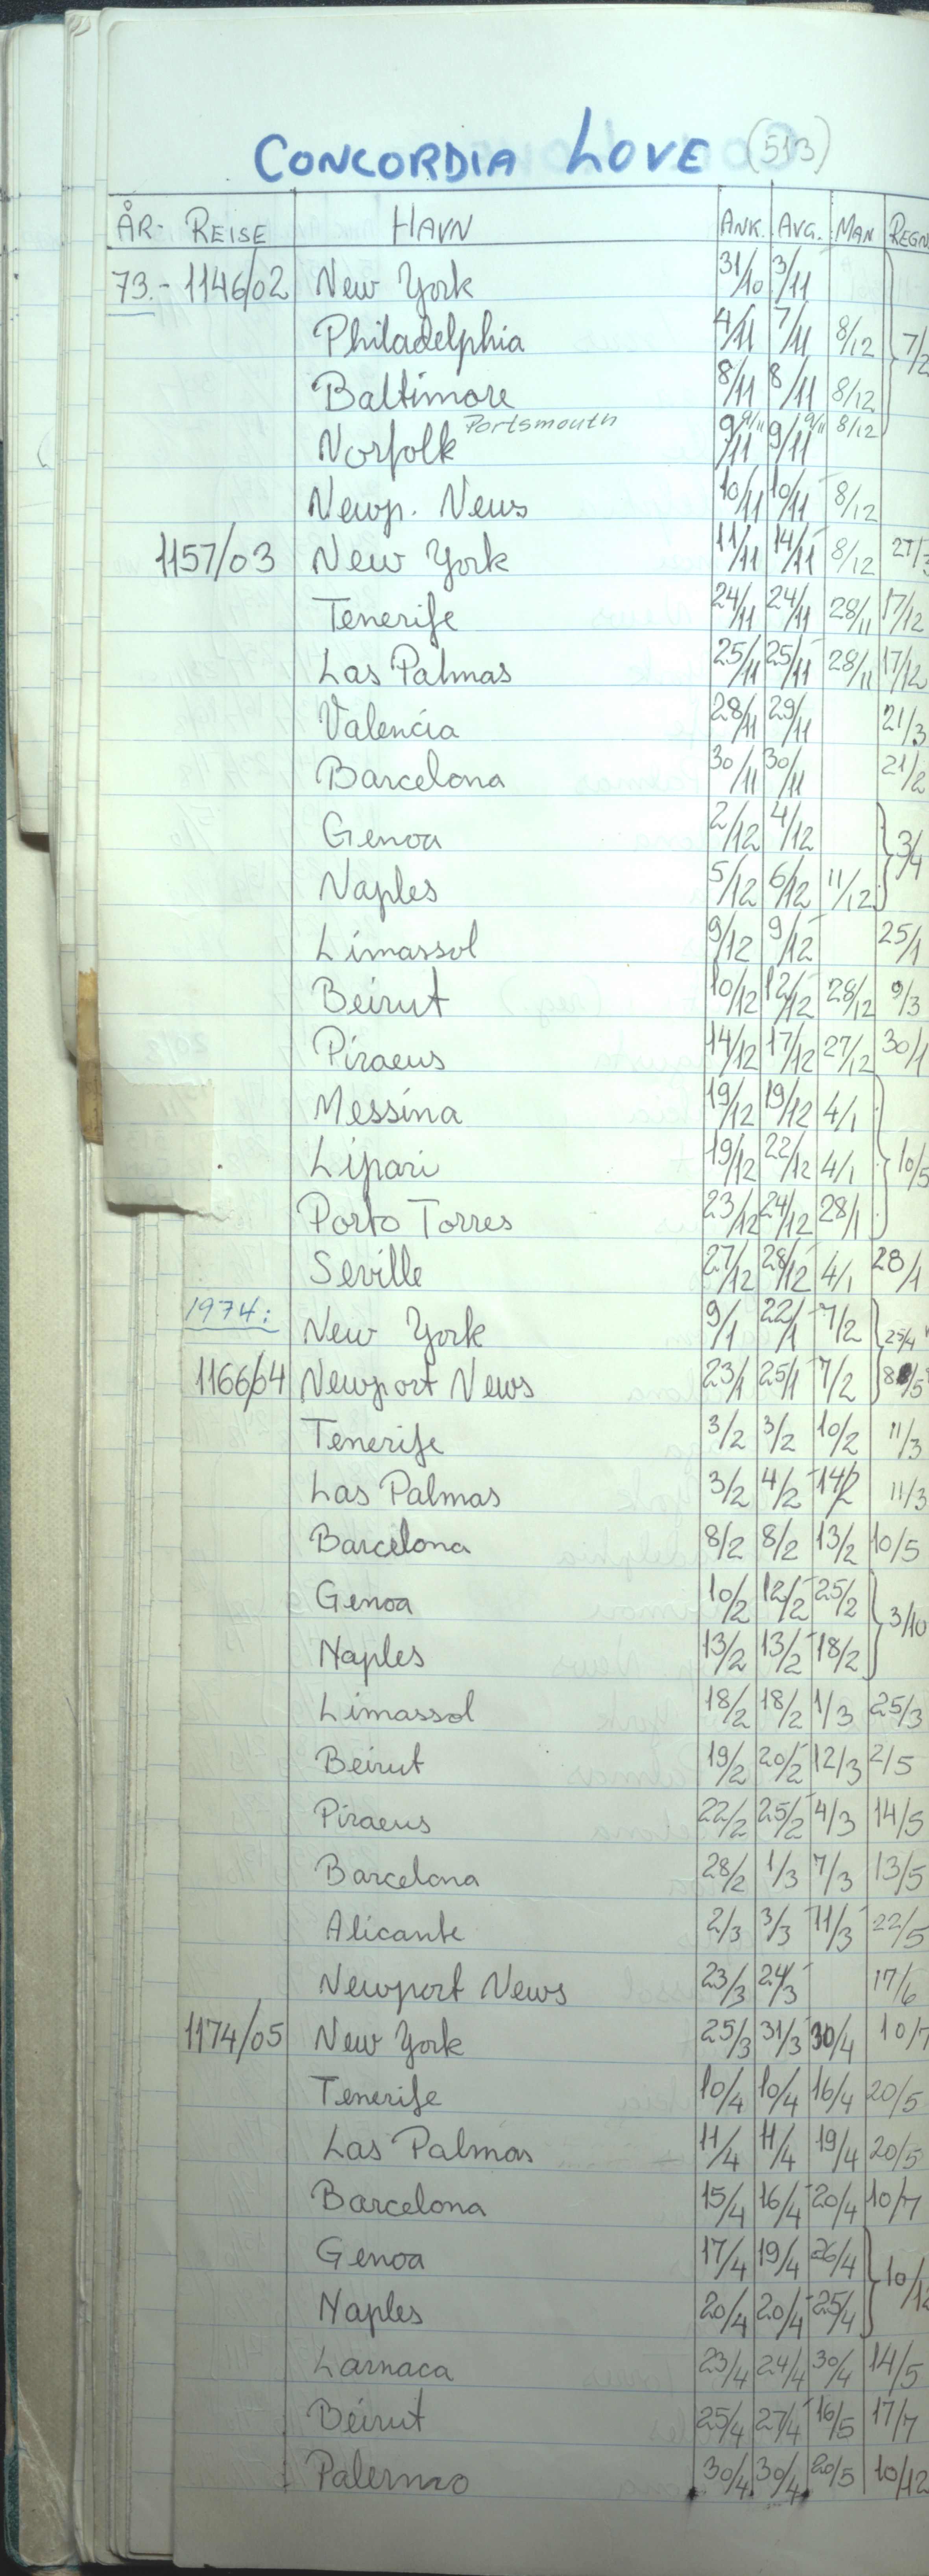 CONCORDIA LOVE (513)
ÅR- REISE HAVN ANK. AVG. MAN REGN
73.- 1146/02 New York 31/10 3/11
Philadelphia 4/11 7/11 8/12 7/2
Baltimore 8/11 8/11 8/12
Norfolk Portsmouth 9/11 9/11 9/11 9/11 8/12
Newp. News 10/11 10/11 8/12
1157/03 New York 11/11 14/11 8/12 27/3
Tenerife 24/11 24/11 28/11 17/12
Las Palmas 25/11 25/11 28/11 17/12
Valencia 28/11 29/11 21/3
Barcelona 30/11 30/11 21/2
Genoa 2/12 4/12 3/4
Naples 5/12 6/12 11/12
Limassol 9/12 9/12 25/1
Beirut 10/12 12/12 28/12 9/3
Piraeus 14/12 17/12 27/12 30/1
Messina 19/12 19/12 4/1
Lipari 19/12 22/12 4/1 10/5
Porto Torres 23/12 24/12 28/1
Seville 27/12 28/12 4/1 28/1
1974: New York 9/1 22/1 7/2 25/4
1166/04 Newport News 23/1 25/1 7/2 8/5
Tenerife 3/2 3/2 10/2 11/3
Las Palmas 3/2 4/2 14/2 11/3
Barcelona 8/2 8/2 13/2 10/5
Genoa 10/2 12/2 25/2 3/10
Naples 13/2 13/2 18/2
Limassol 18/2 18/2 1/3 25/3
Beirut 19/2 20/2 12/3 2/5
Piraeus 22/2 25/2 4/3 14/5
Barcelona 28/2 1/3 7/3 13/5
Alicante 2/3 3/3 11/3 22/5
Newport News 23/3 24/3 17/6
1174/05 New York 25/3 31/3 30/4 10/7
Tenerife 10/4 10/4 16/4 20/5
Las Palmas 11/4 11/4 19/4 20/5
Barcelona 15/4 16/4 20/4 10/7
Genoa 17/4 19/4 26/4 10/12
Naples 20/4 20/4 25/4
Larnaca 23/4 24/4 30/4 14/5
Beirut 25/4 27/4 16/5 17/7
Palermo 30/4 30/4 20/5 10/12